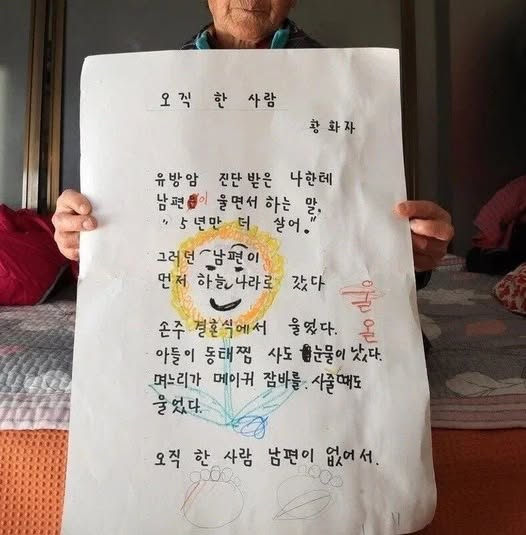 오직 한 사람
황화자
유방암 진단받은 나한테
남편이 울면서 하는 말,
"5년만 더 살어."
그러던 남편이
먼저 하늘나라로 갔다
손주 결혼식에서 울었다.
아들이 동태찜 사도 눈물이 났다.
며느리가 메이커 잠바를 사줄때도
울었다.
오직 한 사람 남편이 없어서.